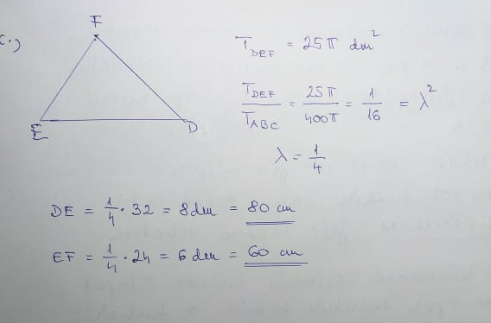 c.)
F
E
D
T_DEF = 25π dm²
T_DEF / T_ABC = 25π / 400π = 1/16 = λ²
λ = 1/4
DE = 1/4 · 32 = 8 dm = 80 cm
EF = 1/4 · 24 = 6 dm = 60 cm